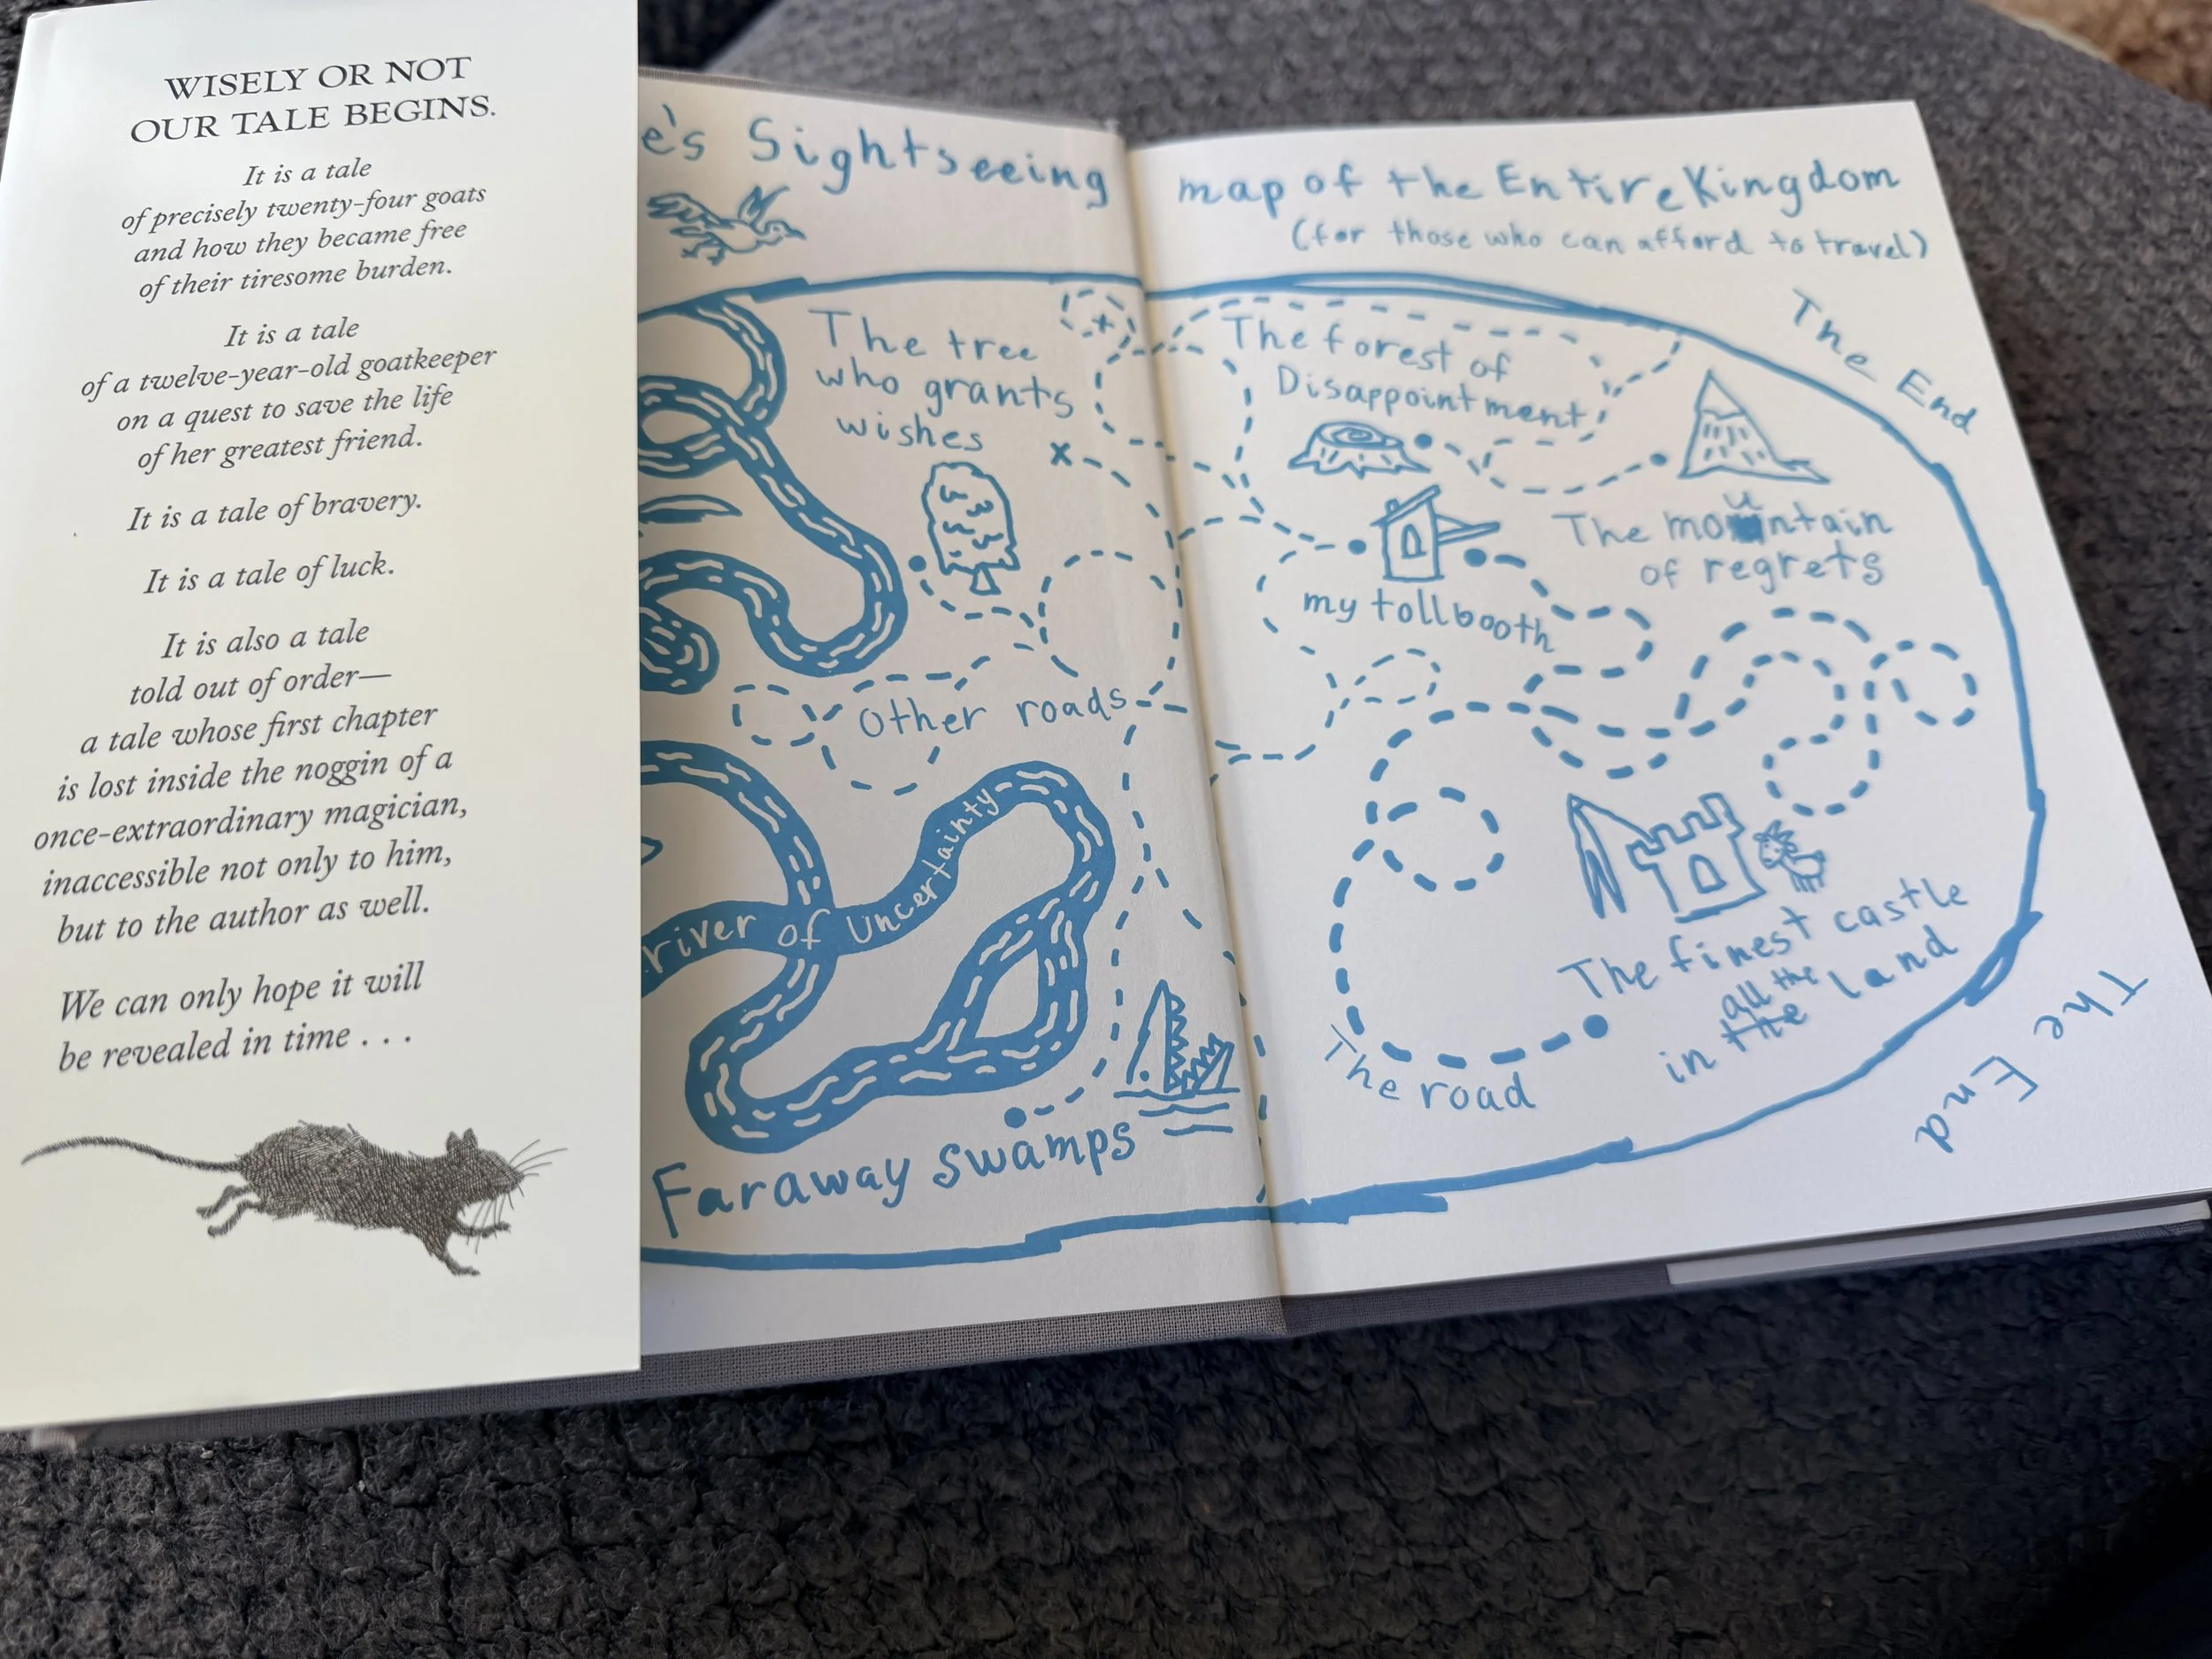 WISELY OR NOT
OUR TALE BEGINS.
It is a tale
of precisely twenty-four goats
and how they became free
of their tiresome burden.
It is a tale
of a twelve-year-old goatkeeper
on a quest to save the life
of her greatest friend.
It is a tale of bravery.
It is a tale of luck.
It is also a tale
told out of order—
a tale whose first chapter
is lost inside the noggin of a
once-extraordinary magician,
inaccessible not only to him,
but to the author as well.
We can only hope it will
be revealed in time . . .
e's Sightseeing map of the Entire Kingdom
(for those who can afford to travel)
The tree
who grants
wishes
x
x
Other roads
river of Uncertainty
Faraway swamps
The forest of
Disappointment
The mountain
of regrets
my tollbooth
The finest castle
all the
in the land
The road
The End
The End